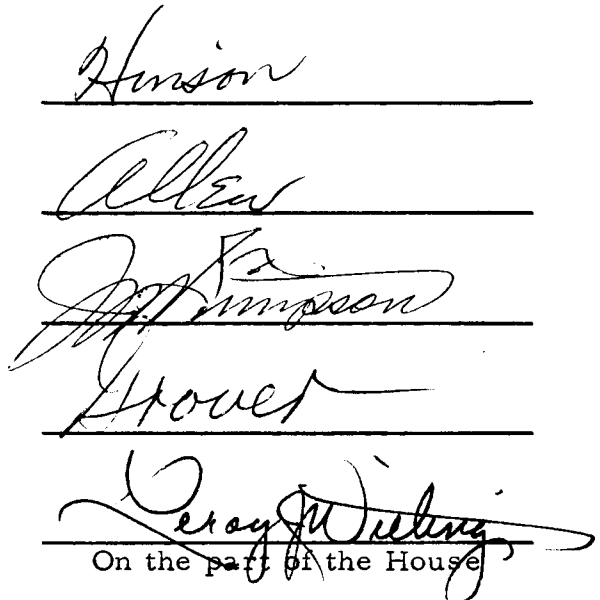 Hinson
Allen
Grover
Leroy J Wieting
On the part of the House